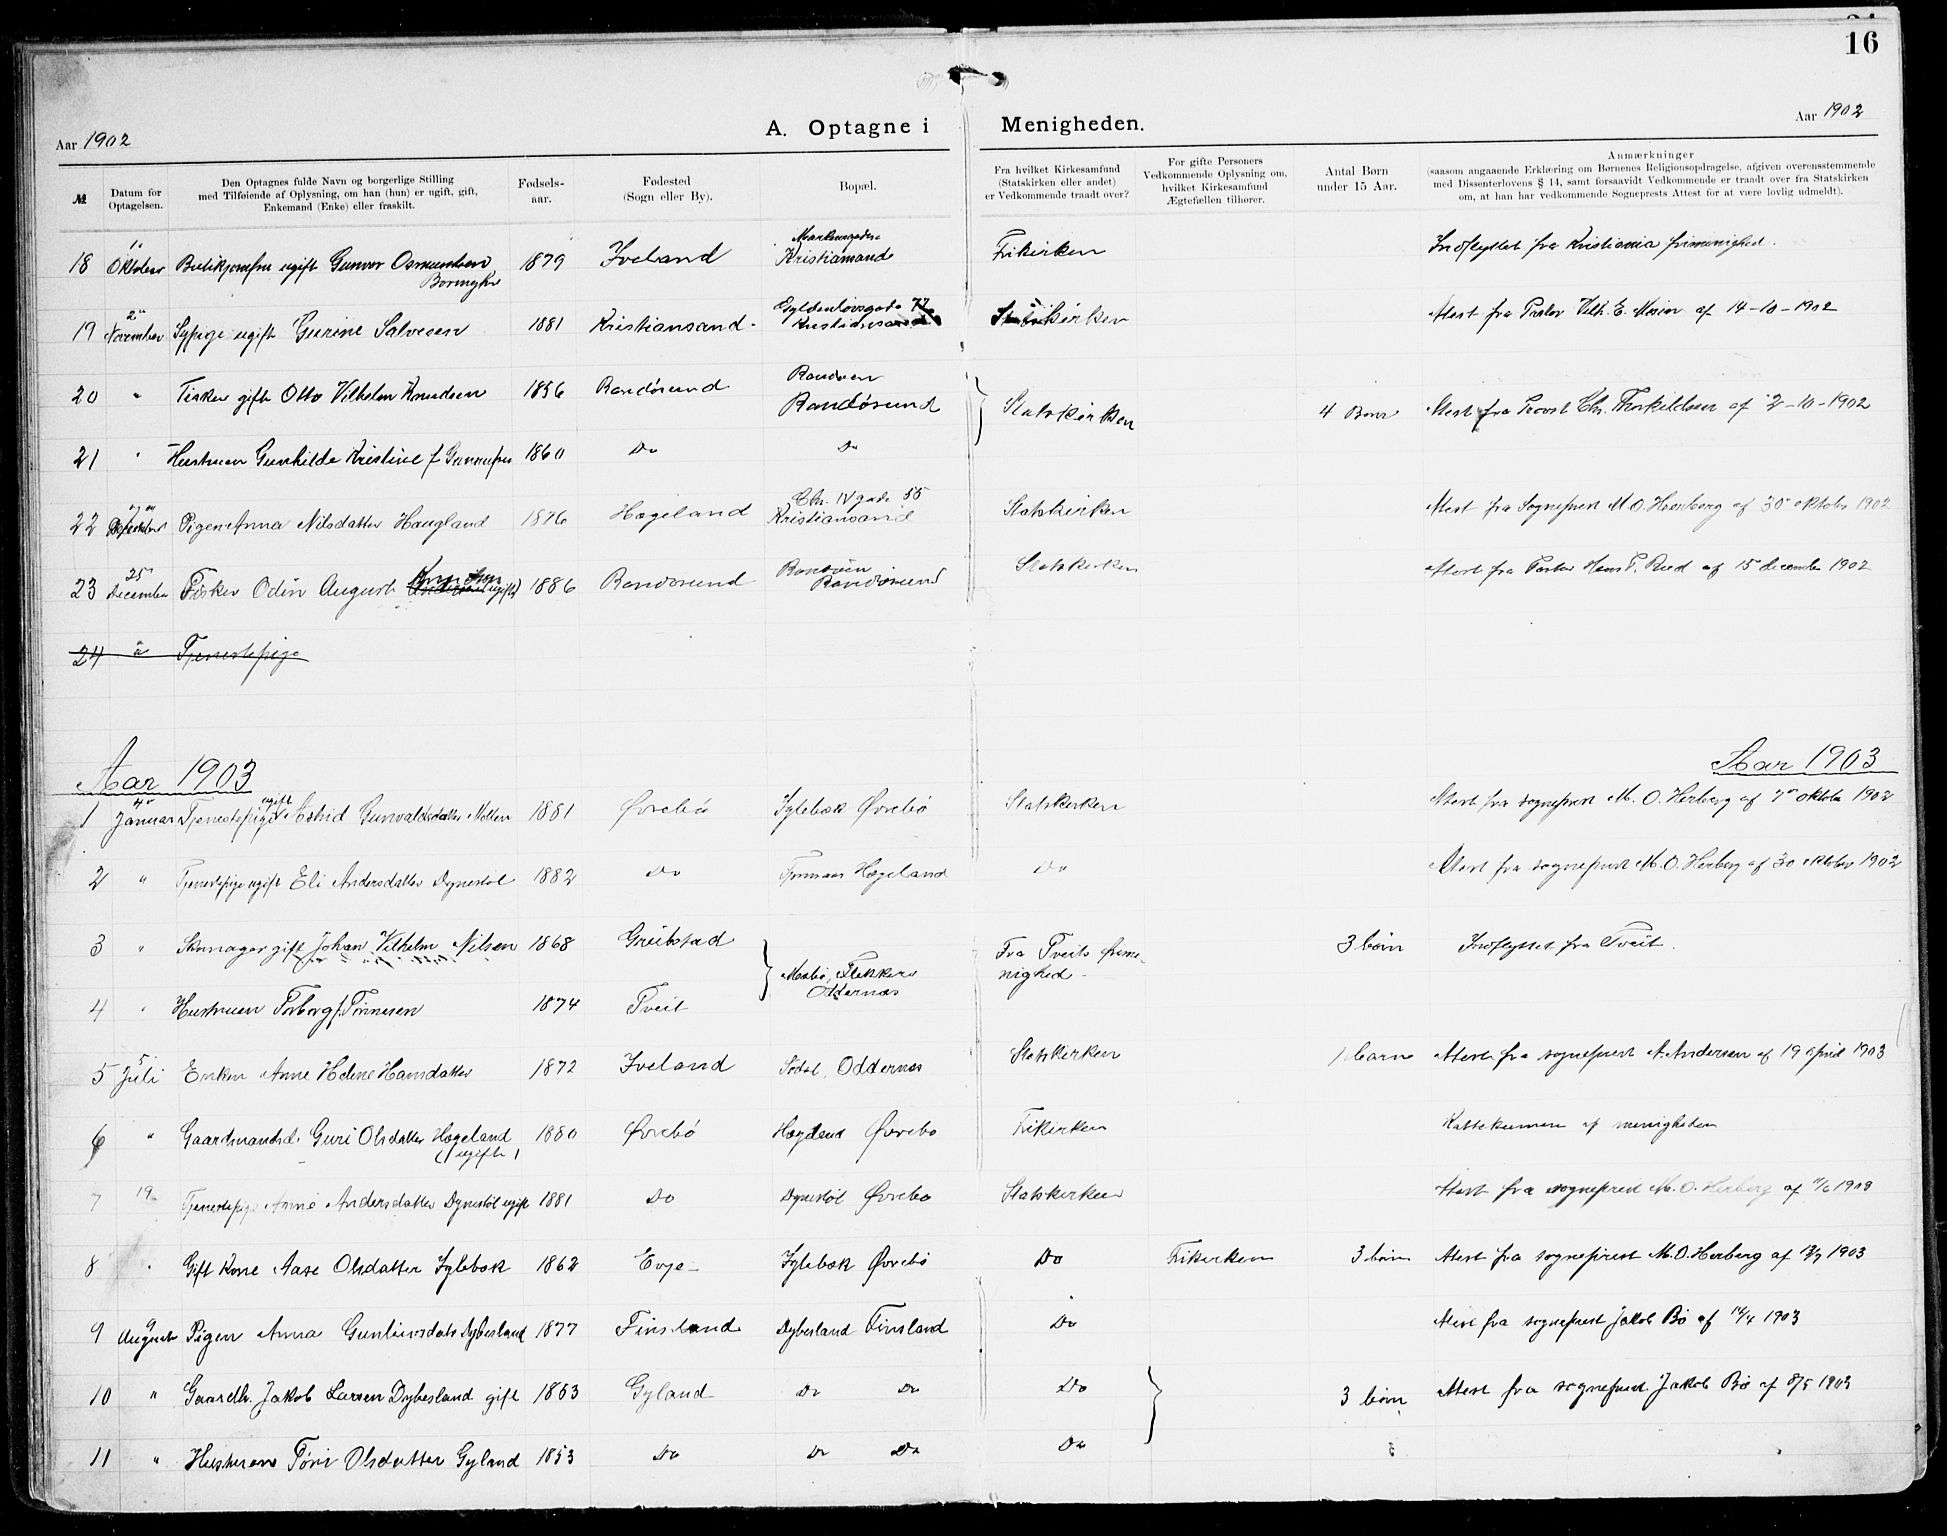 16
Aar 1902
A. Optagne i Menigheden.
Aar 1902
№
Datum for Optagelsen.
Den Optagnes fulde Navn og borgerlige Stilling med Tilføiende af Oplysning, om han (hun) er ugift, gift, Enkemand (Enke) eller fraskilt.
Fødsels-aar.
Fødested (Sogn eller By).
Bopæl.
Fra hvilket Kirkesamfund (Statskirken eller andet) er Vedkommende traadt over?
For gifte Personers Vedkommende Oplysning om, hvilket Kirkesamfund Ægtefællen tilhører.
Antal Børn under 15 Aar.
Anmærkninger (saasom angaaende Erklæring om Børnenes Religionsopdragelse, afgiven overensstemmende med Dissenterlovens § 14, samt forsaavidt Vedkommende er traadt over fra Statskirken om, at han har vedkommende Sogneprests Attest for at være lovlig udmeldt).
18 Oktober ugift Gunvor Osmundsen 1879 Iveland Markensgade Kristiansand Frikirken Indflyttet fra Kristiania frimenighed.
19 2" November Sypige ugift Gurine Salvesen 1881 Kristiansand Gyldenløvsgade 77 Kristiansand Statskirken Attest fra Pastor Vilh. E. af 14-10-1902
20 " Fisker gift Otto Vilhelm Knudsen 1856 Randøsund Randøen Randøsund } Statskirken 4 Børn Attest fra Provst Chr. Thorkildsen af 2-10-1902
21 " Hustruen Gunhilde Kristine f 1860 Do Do
22 Pigen Anna Nilsdatter Haugland 1876 Hægeland Chr. IV gade 55 Kristiansand Statskirken Attest fra Sogneprest M. O. af 30 oktober 1902
23 25" December Fisker Odin August Knudsen (ugift) 1886 Randøsund Randøen Randøsund Statskirken Attest fra Pastor Hans P. af 15 december 1902
24 " Tjenestepige
Aar 1903
Aar 1903
1 4" Januar Tjenestepige ugift Astrid Gunvaldsdatter 1881 Øvrebø Iglebæk Øvrebø Statskirken Attest fra sogneprest M. O. Herberg af 7" oktober 1902
2 " Tjenestepige ugift Eli Andersdatter Dynestøl 1882 Do Hægeland Do Attest fra sogneprest M. O. Herberg af 30 oktober 1902
3 " gift Johan Vilhelm Nilsen 1868 Greibstad } Flekkerø Oddernæs Fra Tveits frimenighed 3 børn Indflyttet fra Tveit.
4 " Hustruen Torborg f. Tønnesen 1874 Tveit
5 5 Juli Enken Anne Helene Hansdatter 1872 Iveland Sødal, Oddernæs Statskirken 1 barn Attest fra sogneprest A. Andersen af 19 april 1903
6 " Gaardmandsd. Guri Olsdatter Hægeland (ugift) 1880 Øvrebø Øvrebø Frikirken af menigheden
7 19 Tjenestepige Anne Andersdatter Dynestøl ugift 1881 Do Dynestøl Øvrebø Statskirken Attest fra sogneprest M. O. Herberg af
8 " Gift Kone Aase Olsdatter Iglebæk 1862 Evje Iglebæk Øvrebø Do Frikirken 3 børn Attest fra sogneprest M. O. Herberg af 1903
9 9 August Pigen Anna Dybesland 1877 Finsland Dybesland Finsland Do Attest fra sogneprest Jakob Bø af 14/4 1903
10 " Gaardbr. Jakob Larsen Dybesland gift 1853 Gyland Do Do Do } 3 børn Attest fra sogneprest Jakob Bø af 8/5 1903
11 " Hustruen Tøri Olsdatter Gyland 1853 Do Do Do Do